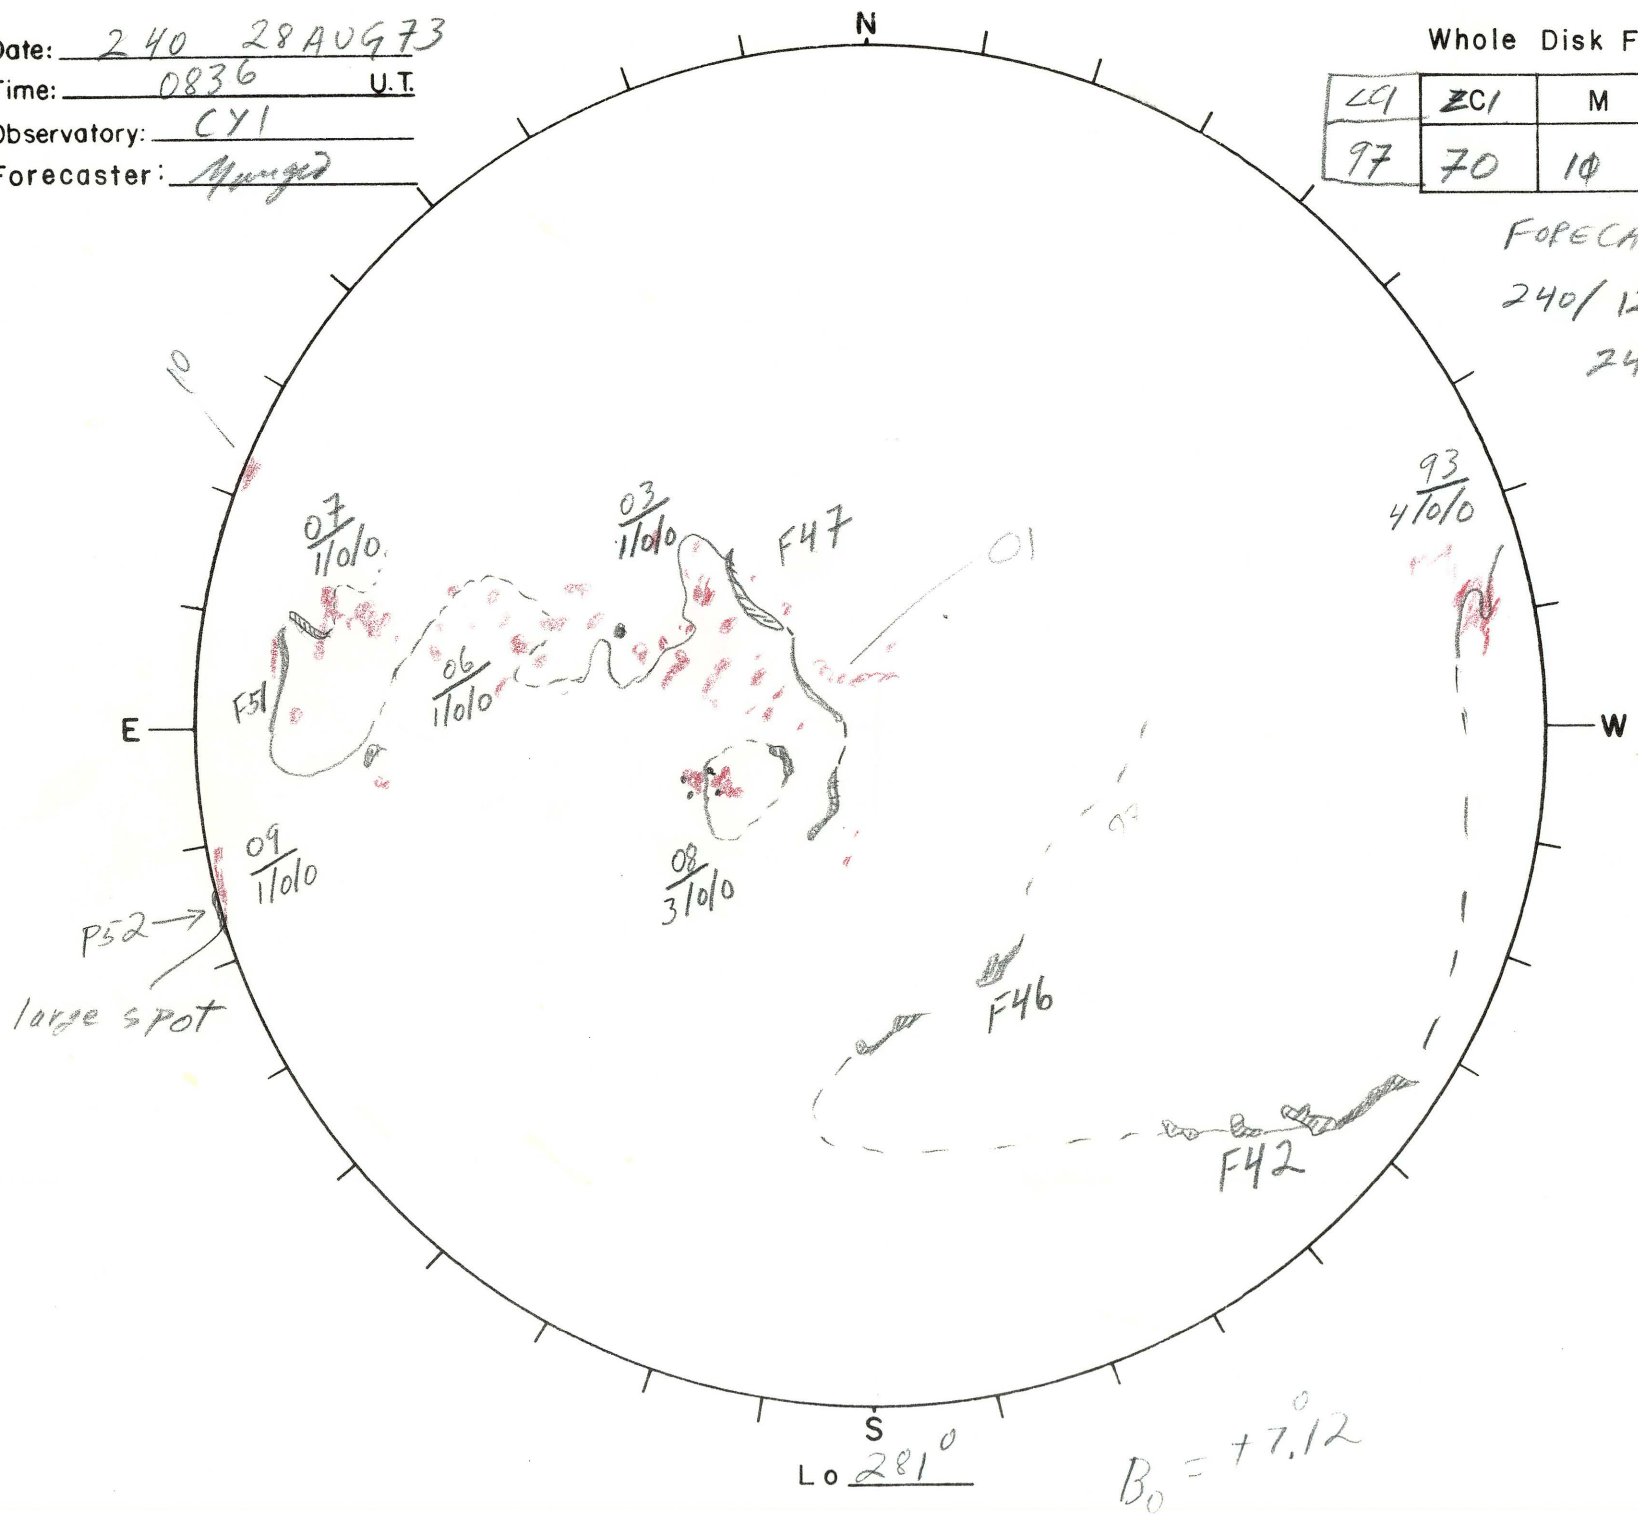 Date: 240 28 AUG 73
Time: 0836 U.T.
Observatory: CYI
Forecaster:
N
Whole Disk F
ZC1 M
97 70 1Φ
FORECA
240/ 12
24
10
93
4/0/0
07
1/0/0
03
1/0/0
F47
01
06
1/0/0
F51
E
W
09
1/0/0
08
3/0/0
P52 →
large spot
F46
F42
S
Lo 281°
B₀ = +7.12°